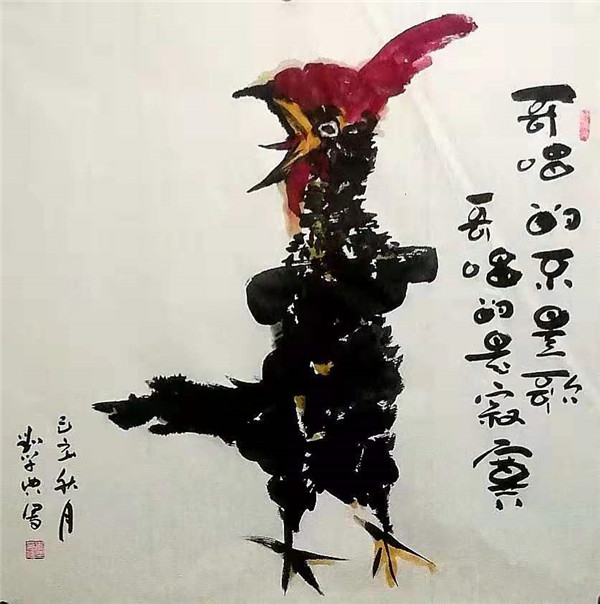 哥唱的不是歌
哥唱的是寂寞
己亥秋月